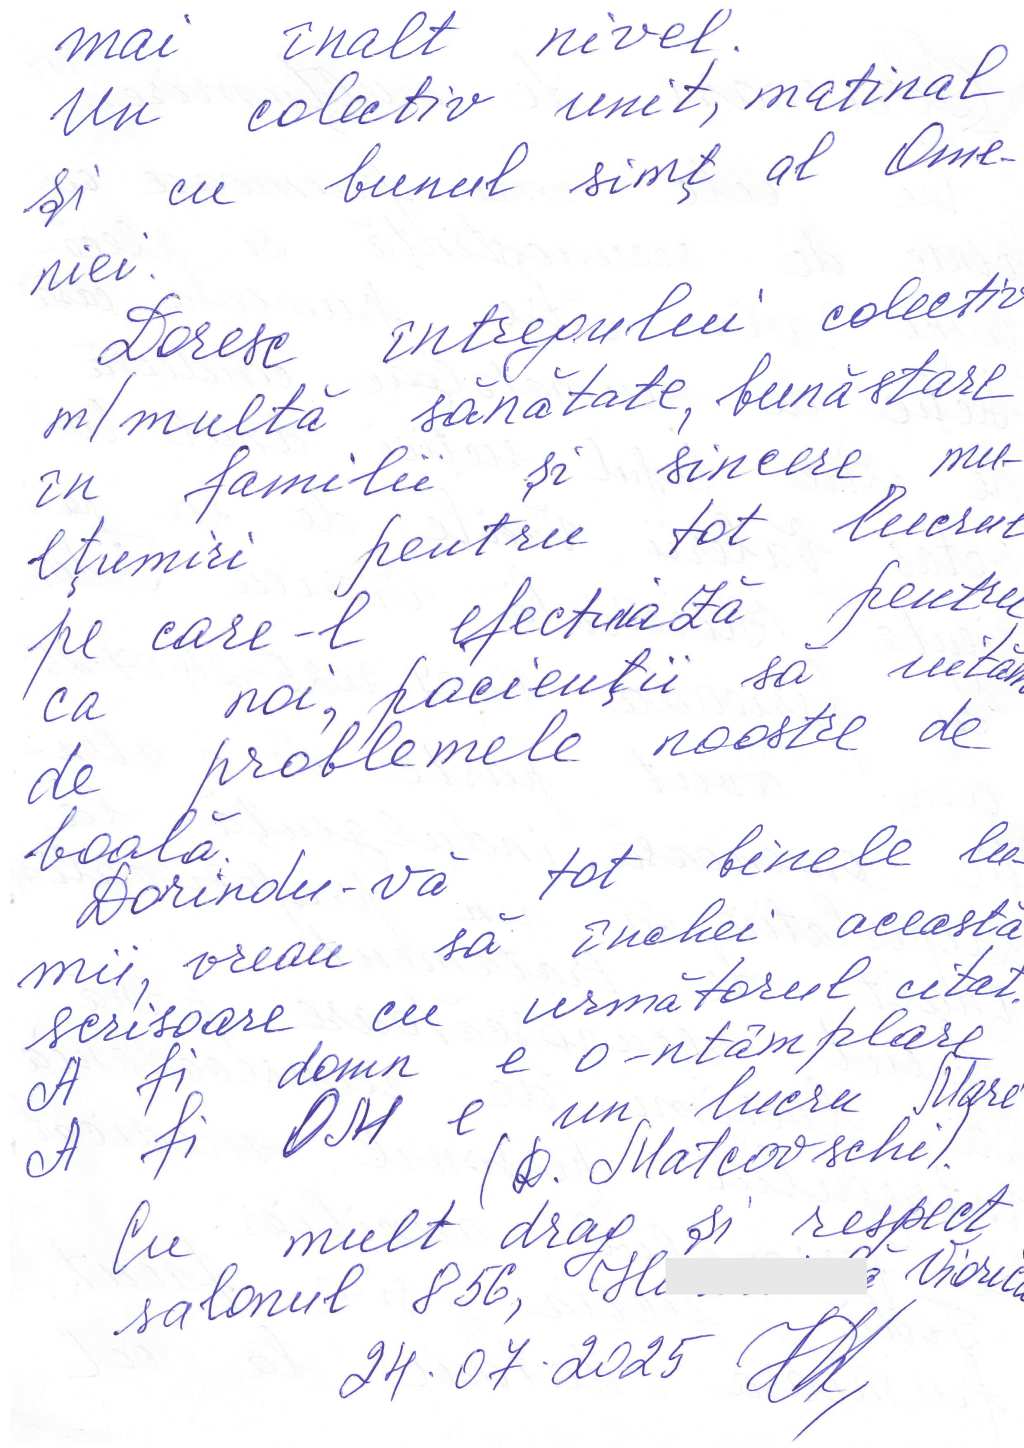 mai înalt nivel.
Un colectiv unit, matinal
și cu bunul simț al Ome-
niei.
Doresc întregului colectiv
m/multă sănătate, bunăstare
în familii și sincere mu-
lțumiri pentru tot lucrul
pe care-l efectuiază pentru
ca noi, pacienții să uităm
de problemele noastre de
boală.
Dorindu-vă tot binele lu-
mii, vreau să închei această
scrisoare cu următorul citat.
A fi domn e o-ntâmplare
A fi OM e un lucru Mare
(D. Matcovschi).
Cu mult drag și respect
salonul 856, Viorica
24.07.2025